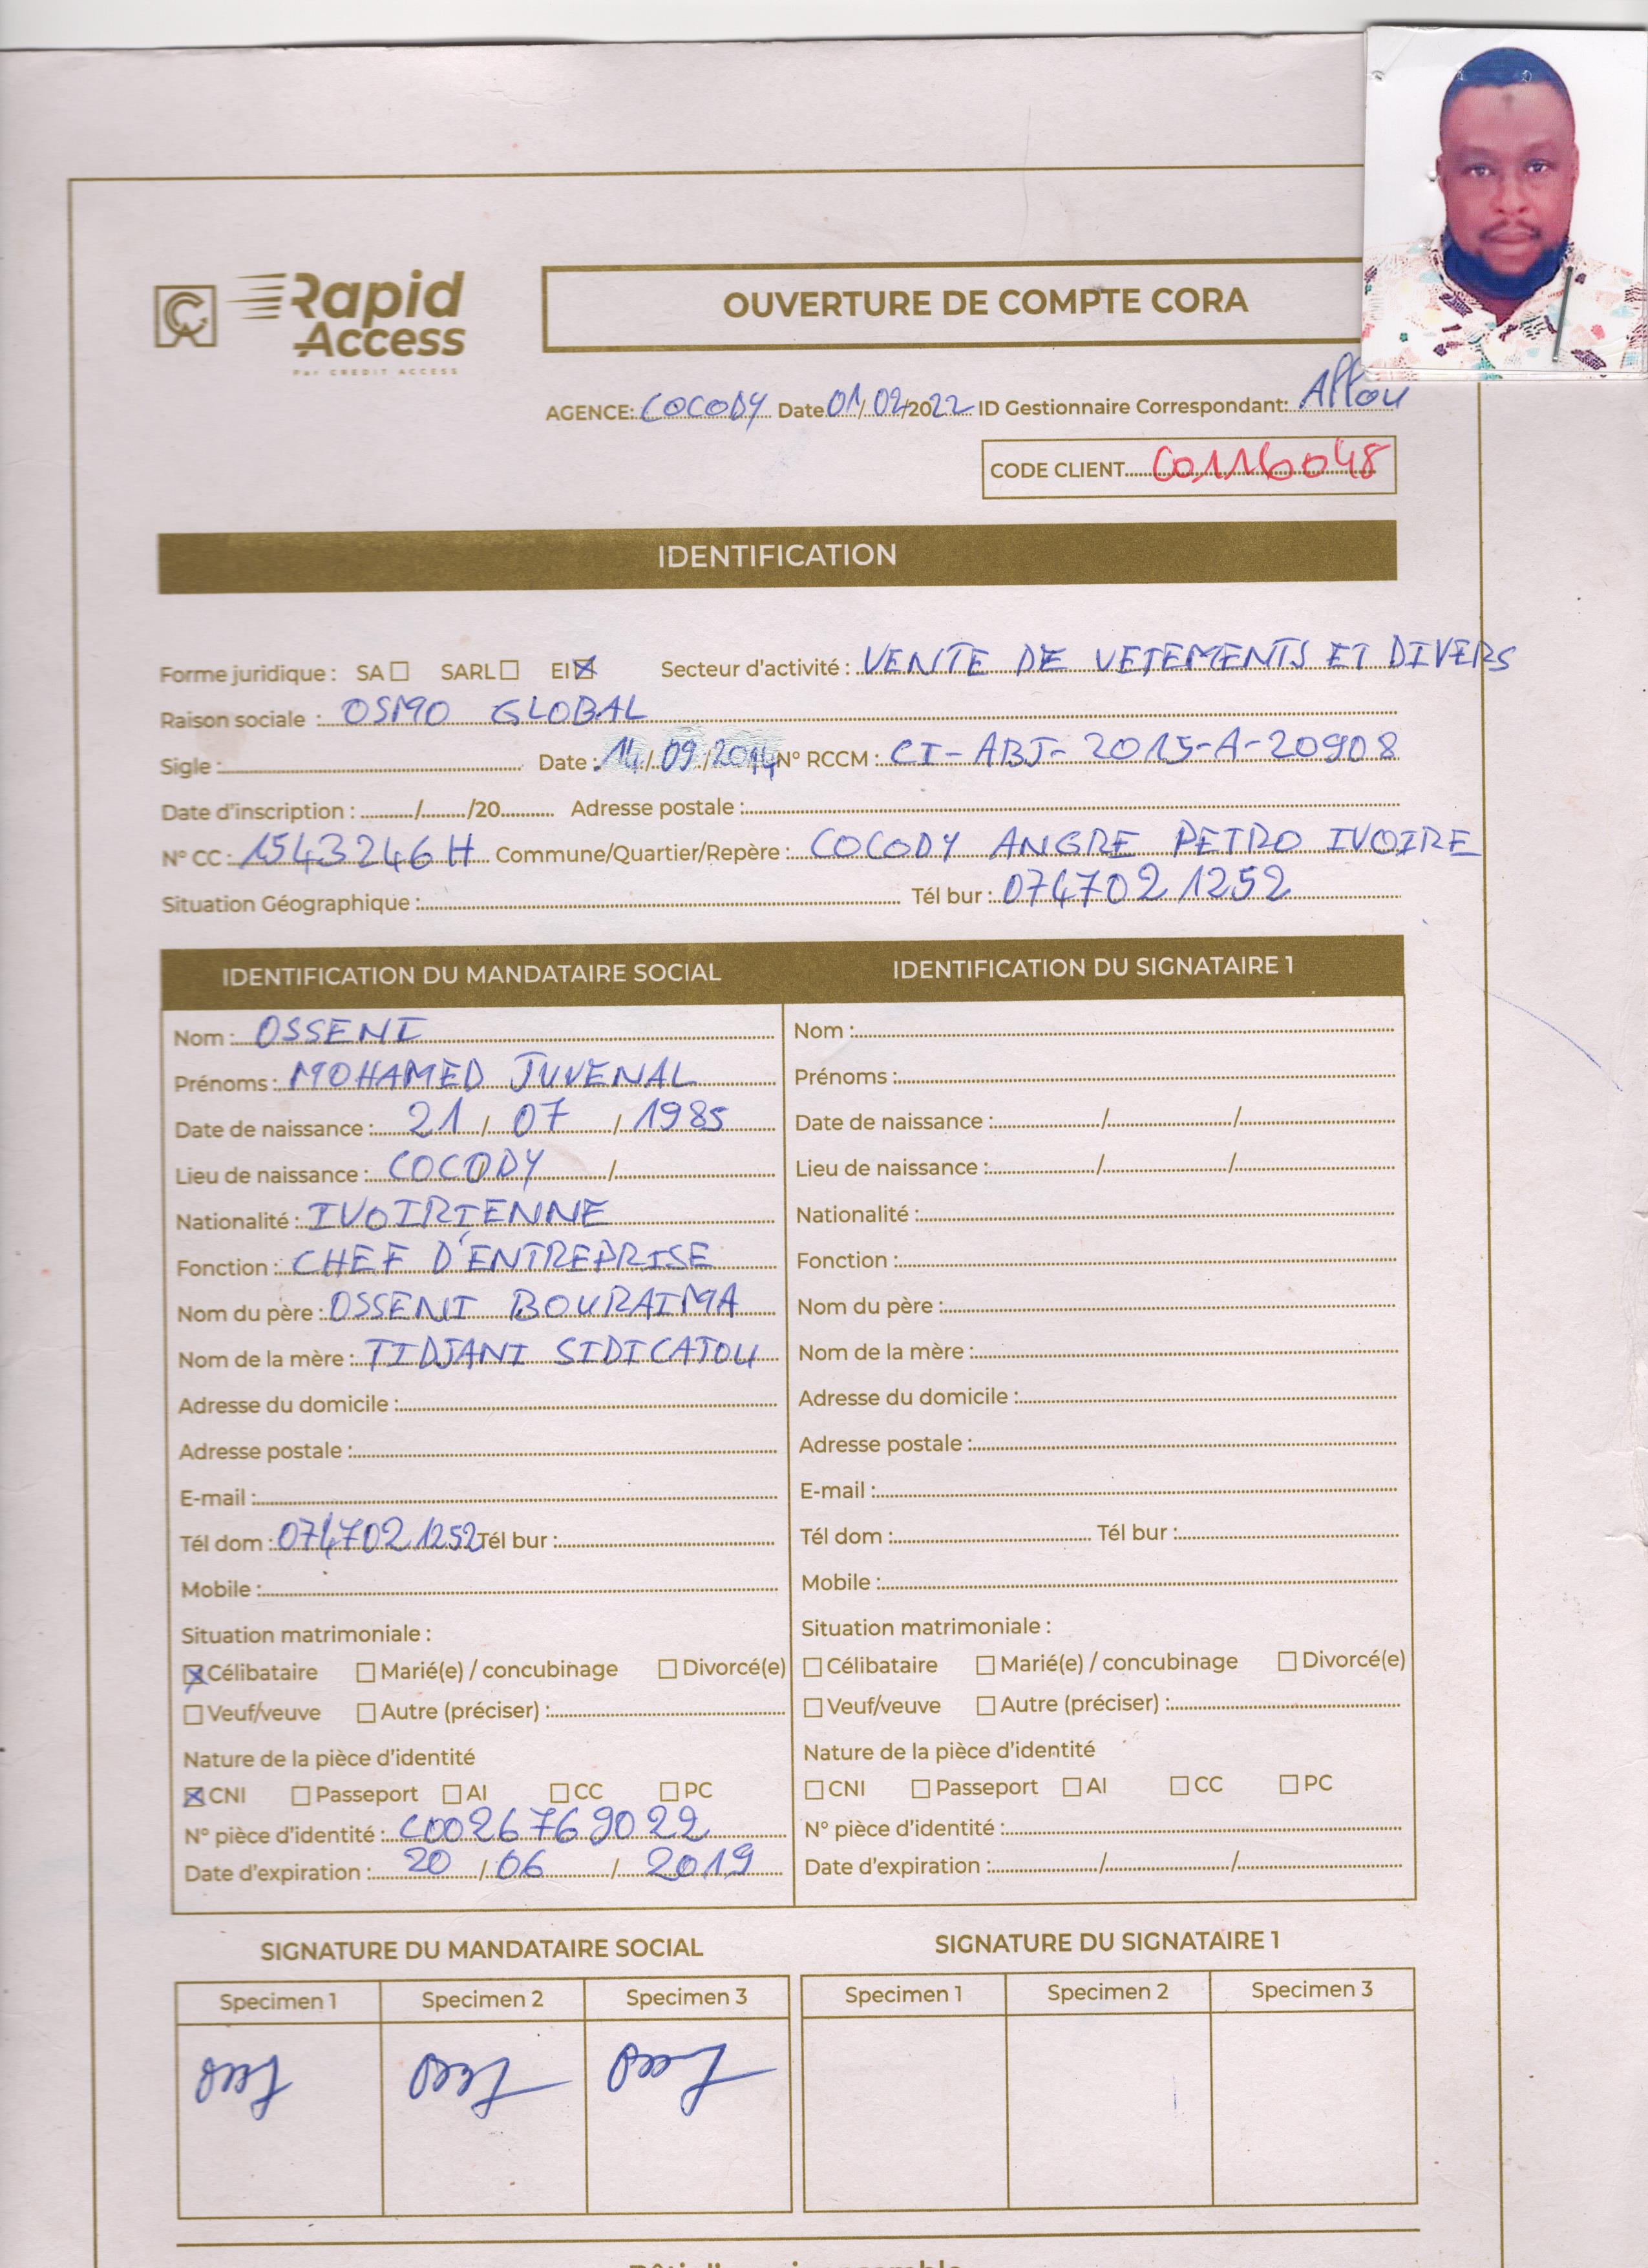 Rapid
Access
Par CREDIT ACCESS
OUVERTURE DE COMPTE CORA
AGENCE: COCODY Date 01/02/2022 ID Gestionnaire Correspondant: Affou
CODE CLIENT C0116048
IDENTIFICATION
Forme juridique : SA SARL EI Secteur d'activité : VENTE DE VETEMENTS ET DIVERS
Raison sociale : OSMO GLOBAL
Sigle : Date : 14/09/2014 N° RCCM : CI-ABJ-2015-A-20908
Date d'inscription : / /20 Adresse postale :
N° CC : 1543246 H Commune/Quartier/Repère : COCODY ANGRE PETRO IVOIRE
Situation Géographique : Tél bur : 0747021252
IDENTIFICATION DU MANDATAIRE SOCIAL
Nom : OSSENI
Prénoms : MOHAMED JUVENAL
Date de naissance : 21 / 07 / 1985
Lieu de naissance : COCODY /
Nationalité : IVOIRIENNE
Fonction : CHEF D'ENTREPRISE
Nom du père : OSSENI BOURAIMA
Nom de la mère : TIDJANI SIDICATOU
Adresse du domicile :
Adresse postale :
E-mail :
Tél dom : 0747021252 Tél bur :
Mobile :
Situation matrimoniale :
Célibataire Marié(e) / concubinage Divorcé(e)
Veuf/veuve Autre (préciser) :
Nature de la pièce d'identité
CNI Passeport AI CC PC
N° pièce d'identité : C0026769022
Date d'expiration : 20 / 06 / 2019
IDENTIFICATION DU SIGNATAIRE 1
Nom :
Prénoms :
Date de naissance : / /
Lieu de naissance : / /
Nationalité :
Fonction :
Nom du père :
Nom de la mère :
Adresse du domicile :
Adresse postale :
E-mail :
Tél dom : Tél bur :
Mobile :
Situation matrimoniale :
Célibataire Marié(e) / concubinage Divorcé(e)
Veuf/veuve Autre (préciser) :
Nature de la pièce d'identité
CNI Passeport AI CC PC
N° pièce d'identité :
Date d'expiration : / /
SIGNATURE DU MANDATAIRE SOCIAL
Specimen 1 Specimen 2 Specimen 3
SIGNATURE DU SIGNATAIRE 1
Specimen 1 Specimen 2 Specimen 3